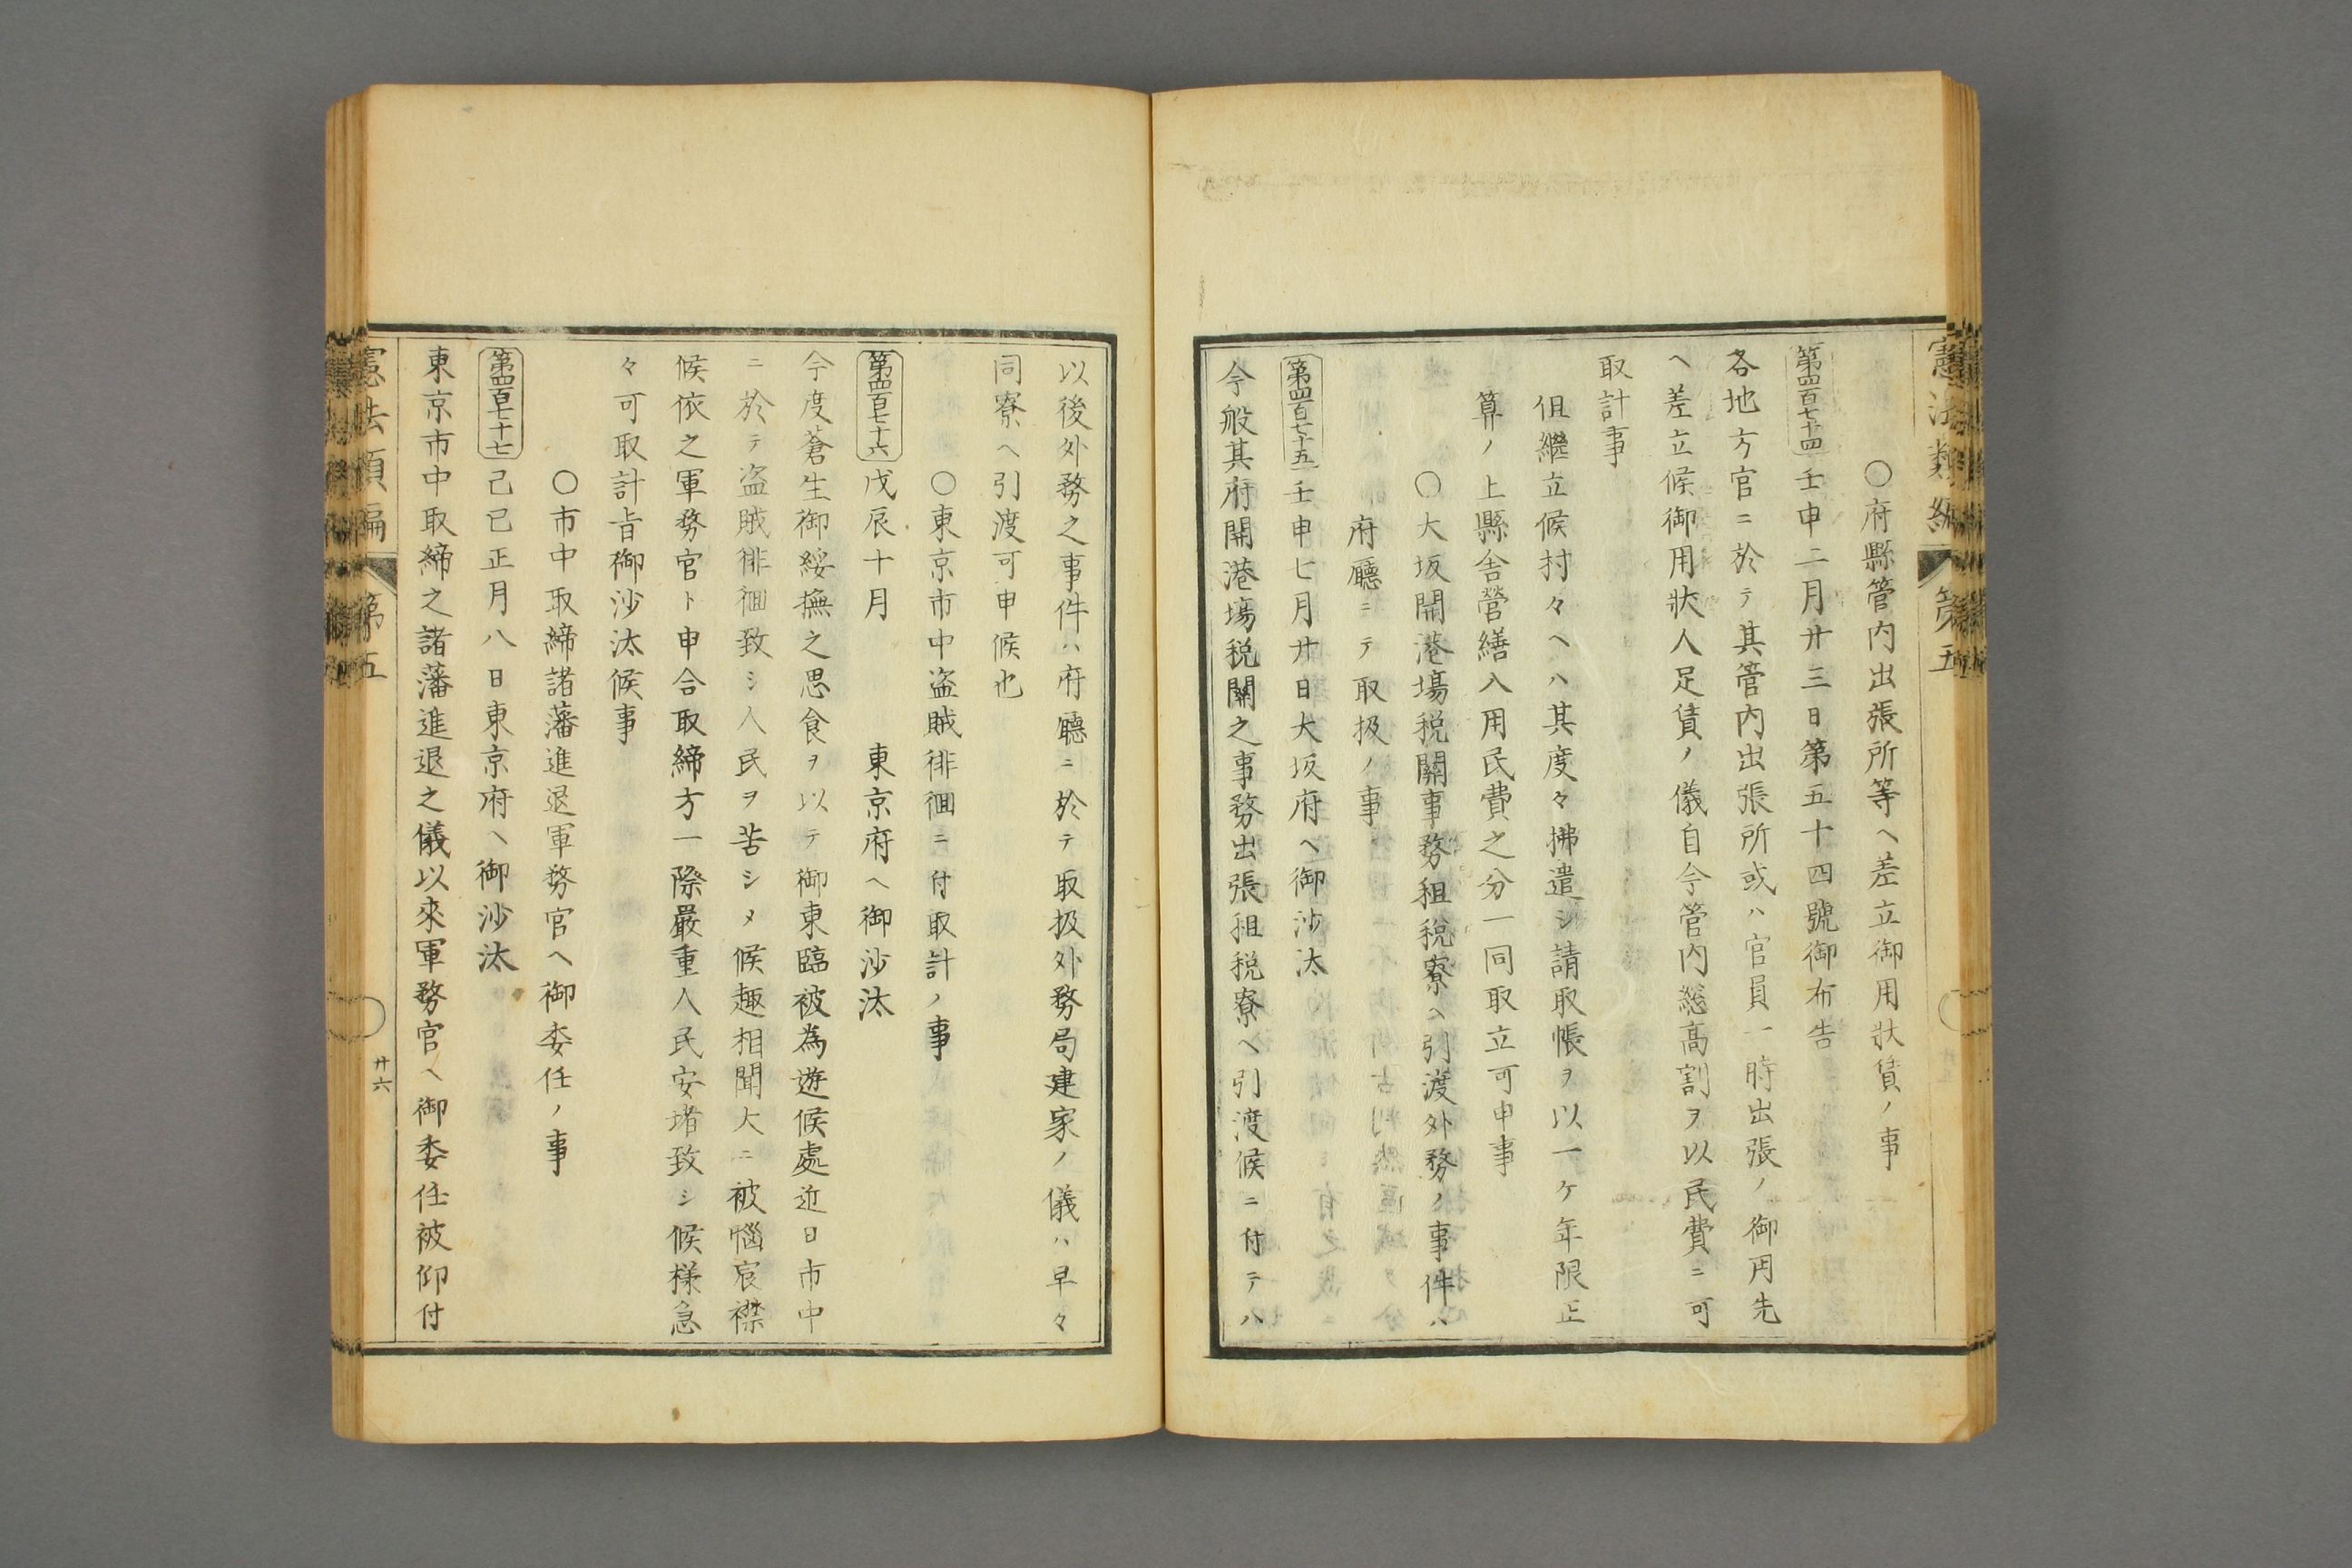 憲法類編 第五
○府縣管内出張所等ヘ差立御用狀賃ノ事
第四百七十四 壬申二月廿三日第五十四號御布告
各地方官ニ於テ其管内出張所或ハ官員一時出張ノ御用先
ヘ差立候御用狀人足賃ノ儀自今管内総高割ヲ以民費ニ可
取計事
但繼立候村々ヘハ其度々拂遣シ請取帳ヲ以一ケ年限正
算ノ上縣舎營繕入用民費之分一同取立可申事
○大坂開港塲税關事務租税寮ヘ引渡外務ノ事件ハ
府廳ニテ取扱ノ事
第四百七十五 壬申七月廿日大坂府ヘ御沙汰
今般其府開港塲税關之事務出張租税寮ヘ引渡候ニ付テハ
以後外務之事件ハ府聽ニ於テ取扱外務局建家ノ儀ハ早々
同寮ヘ引渡可申候也
○東京市中盗賊徘徊ニ付取計ノ事
第四百七十六 戊辰十月 東京府ヘ御沙汰
今度蒼生御綏撫之思食ヲ以テ御東臨被為遊候處近日市中
ニ於テ盗賊徘徊致シ人民ヲ苦シメ候趣相聞大ニ被惱宸襟
候依之軍務官ト申合取締方一際嚴重人民安堵致シ候様急
々可取計旨御沙汰候事
○市中取締諸藩進退軍務官ヘ御委任ノ事
第四百七十七 己巳正月八日東京府ヘ御沙汰
東京市中取締之諸藩進退之儀以來軍務官ヘ御委任被仰付
憲法類編 第五
廿六